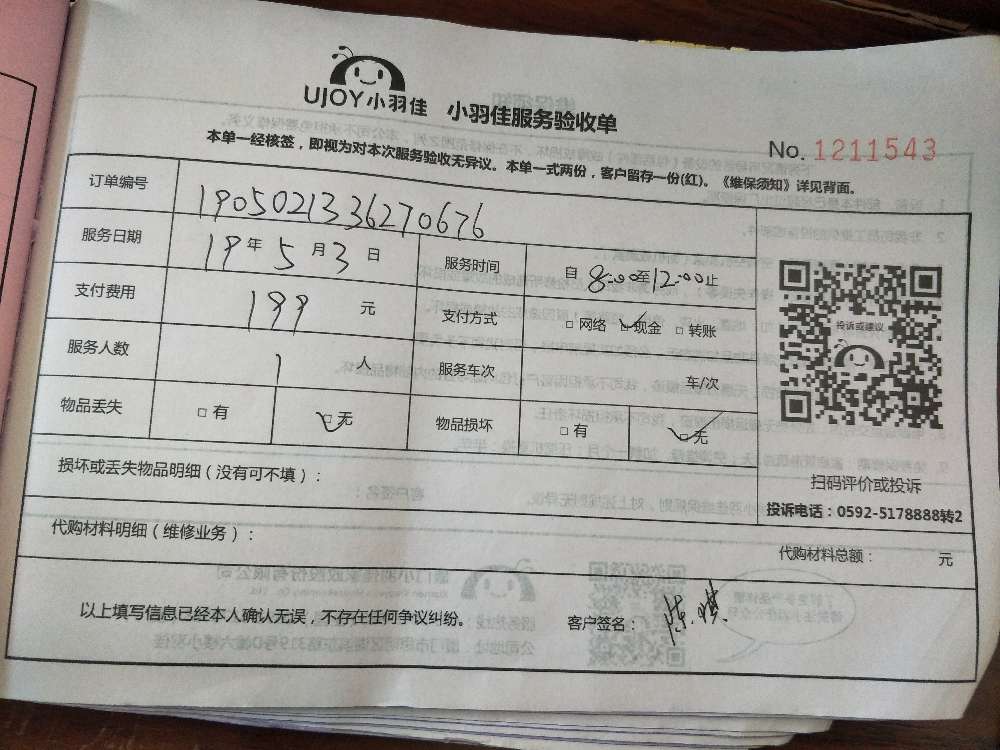 UJOY小羽佳 小羽佳服务验收单
No. 1211543
本单一经核签，即视为对本次服务验收无异议。本单一式两份，客户留存一份(红)。《维保须知》详见背面。
订单编号 1905021336270676
服务日期 19年5月3日 服务时间 自8:00至12:00止
支付费用 199 元 支付方式 □网络 ☑现金 □转账
服务人数 1 人 服务车次 车/次
物品丢失 □有 ☑无 物品损坏 □有 ☑无
投诉或建议
扫码评价或投诉
投诉电话：0592-5178888转2
损坏或丢失物品明细（没有可不填）：
代购材料明细（维修业务）：
代购材料总额： 元
以上填写信息已经本人确认无误，不存在任何争议纠纷。 客户签名：